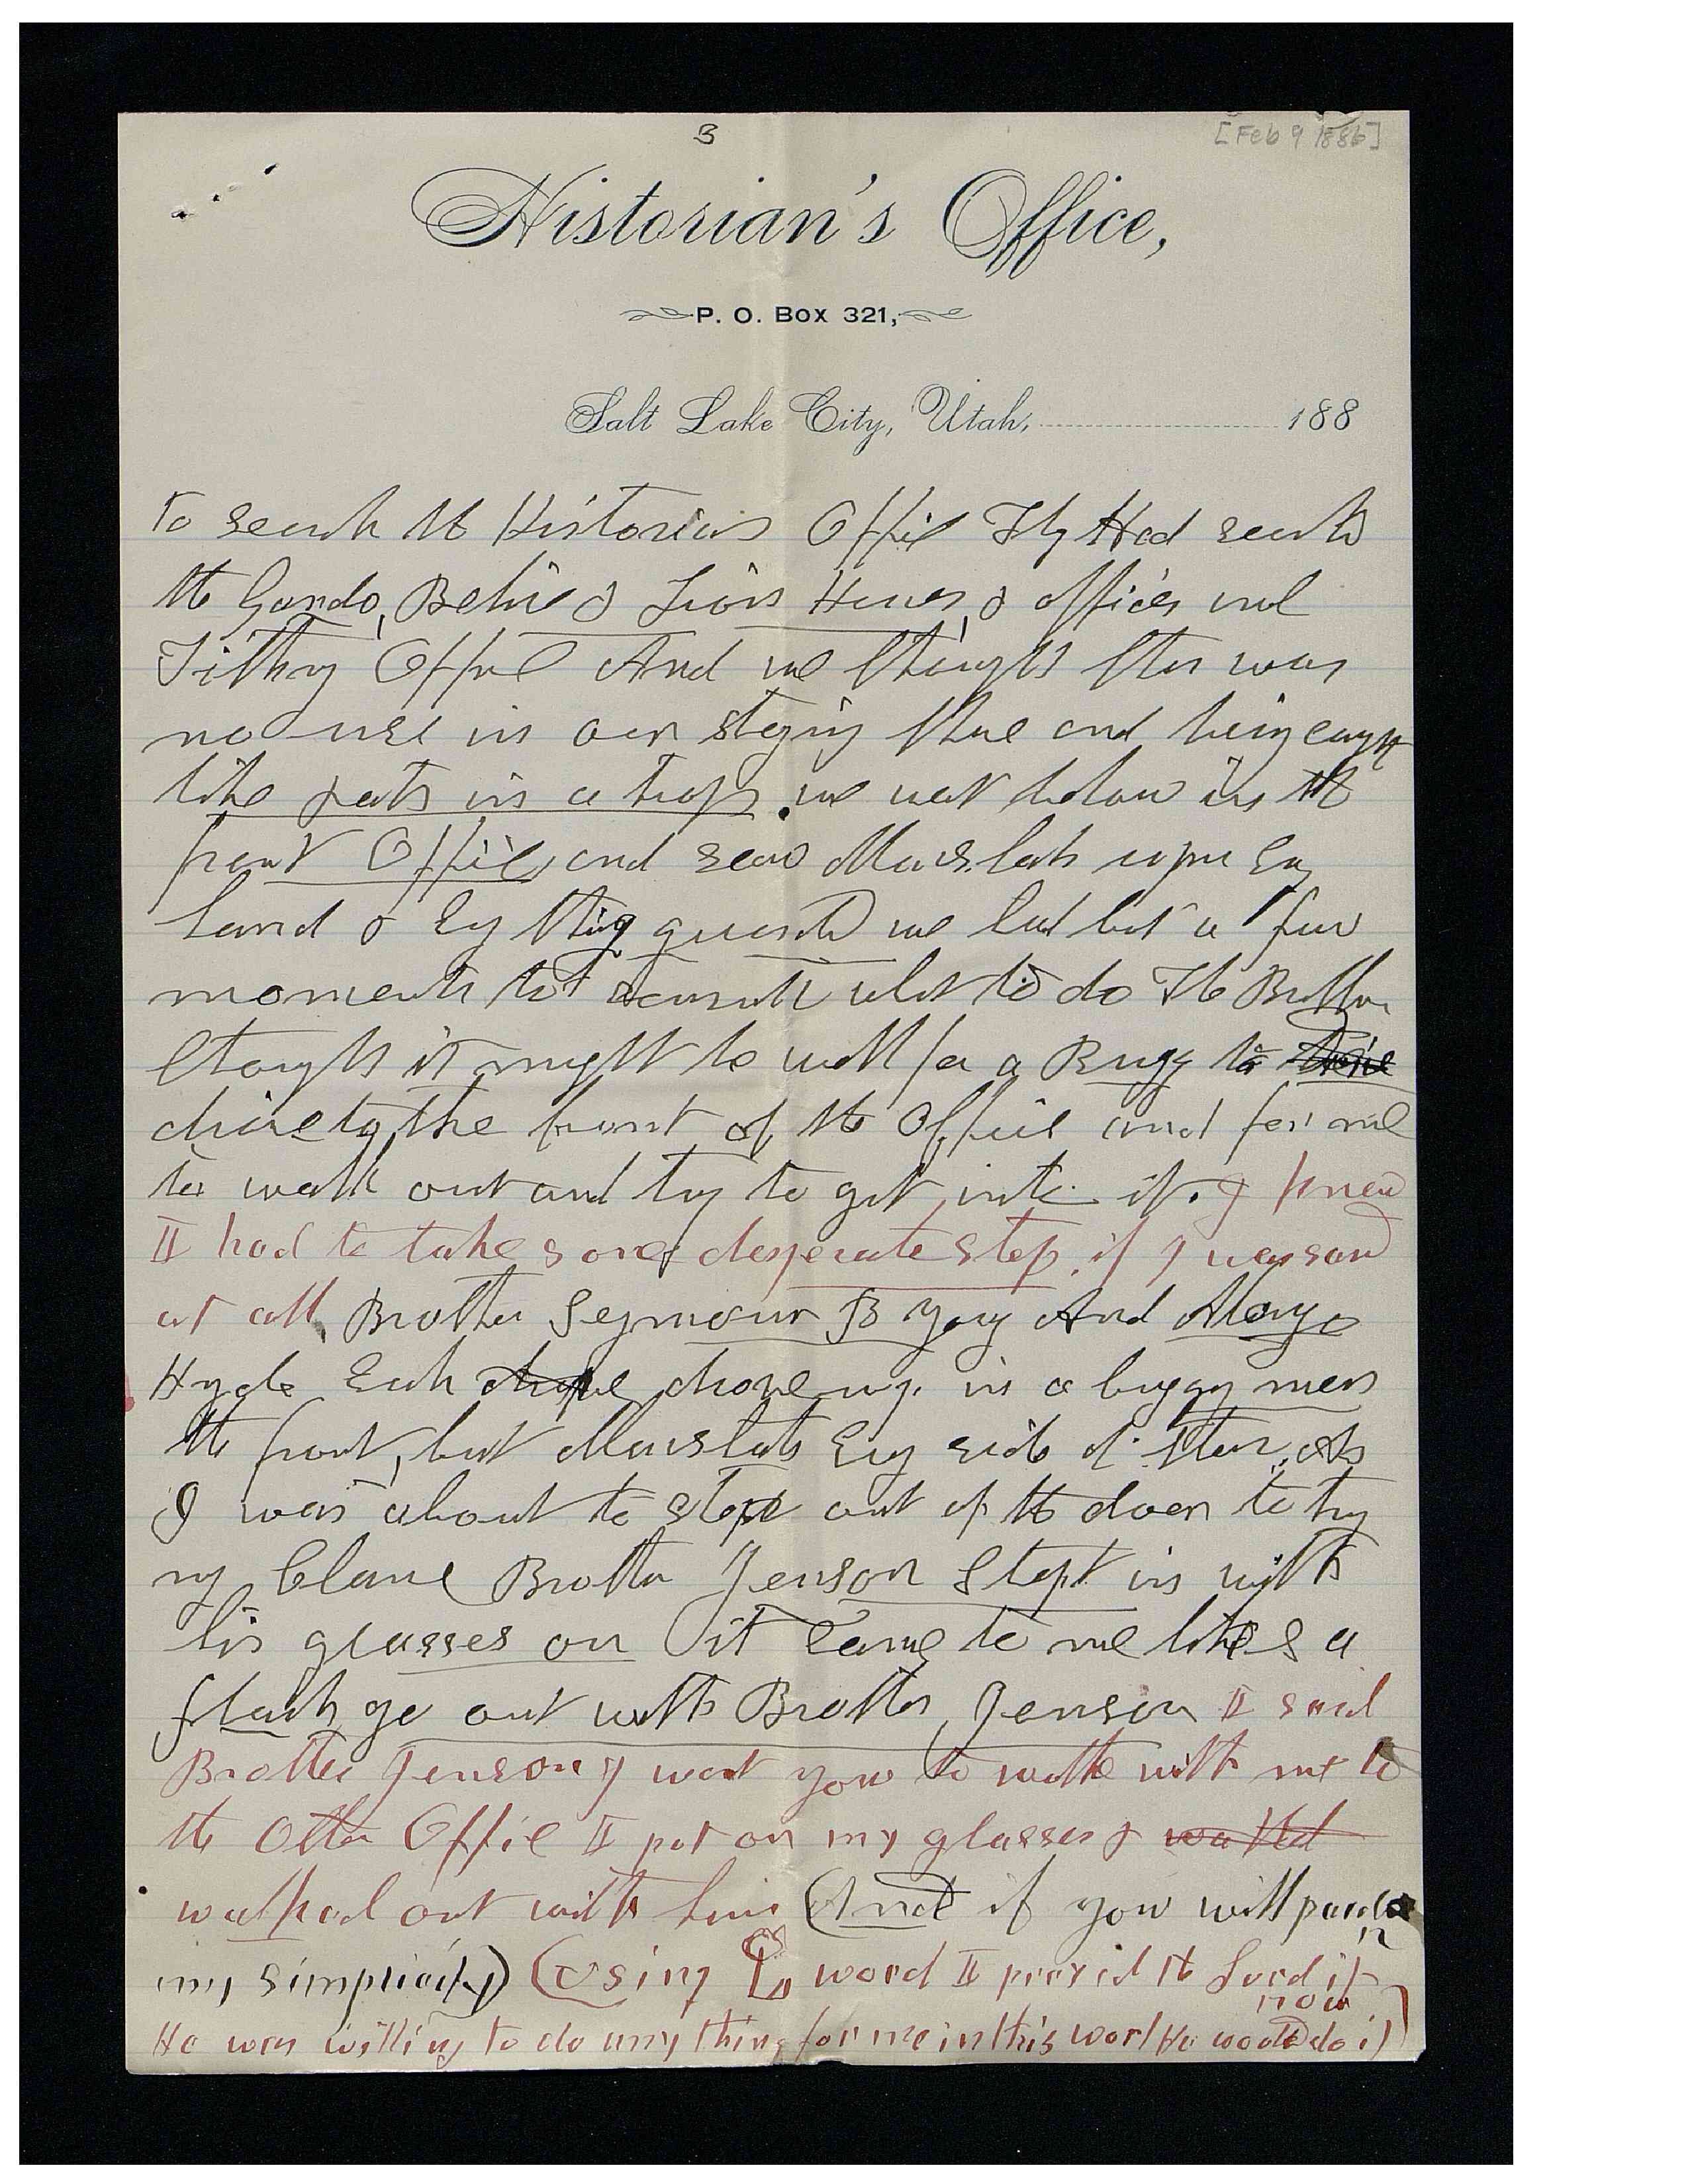 3
[Feb 9 1886]
Historian's Office,
P. O. Box 321,
Salt Lake City, Utah, 188
to search the Historians Office They Had search
the Gardo, Behive & Lions Houses, & offices and
Tithing Office And we thought ther was
no use in our staying thare and being caught
like rats in a trap. we went below in the
front Office, and saw Marshals upon Ev
hand & evry thing guarded we had but a few
moments to consult what to do The Brethren
thought it might be well for a Bugy to drive
drive to the front of the Office and for me
to walk out and try to get into it. I knew
I had to take some desperate step, if I was saved
at all, Brother Seymour B Young And Alonzo
Hyde Each drove drove up in a buggy near
the front, but Marshals Evry side of them, As
I was about to step out of the door to try
my Chance Brother Jenson Stept in with
his glasses on it came to me like a
flash go out with Brother Jenson I said
Brother Jenson I want you to walk with me to
the Other Office I put on my glasses & walked
walked out with him (And if you will pardon
my simplicity) (using the word I prayed the Lord if
He was willing to do any thing for me in this world He would do it now)